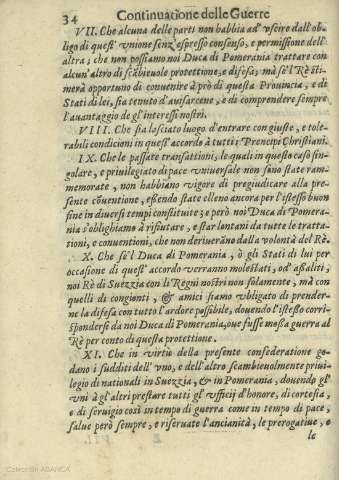 34 Continuatione delle Guerre
VII. Che alcuna delle parti non habbia ad vscire dall'ob-
ligo di quest' vnione senz'espresso consenso, e permissione dell'
altra; che non possiamo noi Duca di Pomerania trattare con
alcun'altro di scābieuole protettione, e difesa; mà se'l Rè sti-
merà opportuno di conuenire à prò di questa Prouincia, e di
Stati di lei, sia tenuto d'ausarcene, e di comprendere sempre
l'auantaggio de gl'interessi nostri.
VIII. Che sia lasciato luogo d'entrare con giuste, e tole-
rabili condicioni in quest'accordo à tutti i Prencipi Christiani.
IX. Che le passate transattioni, le quali in questo caso sin-
golare, e priuilegiato di pace vniuersale non sono state ram-
memorate, non habbiano vigore di pregiudicare alla pre-
sente cōuentione, essendo state elleno ancora per l'istesso buon
fine in diuersi tempi constituite; e però noi Duca di Pomera-
nia s'oblighiamo à rifiutare, e star lontani da tutte le tratta-
tioni, e conuentioni, che non deriueràno dalla volontà del Rè.
X. Che se'l Duca di Pomerania, ò gli Stati di lui per
occasione di quest' accordo verranno molestati, od' assaliti,
noi Rè di Suezzia con li Regni nostri non solamente, mà con
quelli di congionti, & amici siamo vbligato di prender-
ne la difesa con tutto l'ardore possibile, douendo l'istesso corri-
spondersi da noi Duca di Pomerania, oue fusse mossa guerra al
Rè per conto di questa protettione.
XI. Che in virtù della presente confederatione go-
dano i sudditi dell' vno, e dell'altro scambieuolmente priui-
legio di nationali in Suezzia, & in Pomerania, douendo gl'
vni à gl'altri prestare tutti gl' vfficij d'honore, di cortesia, e
di seruigio così in tempo di guerra come in tempo di pace,
salue però sempre, e riseruate l'ancianità, le prerogatiue, e
le
Colección ABANCA